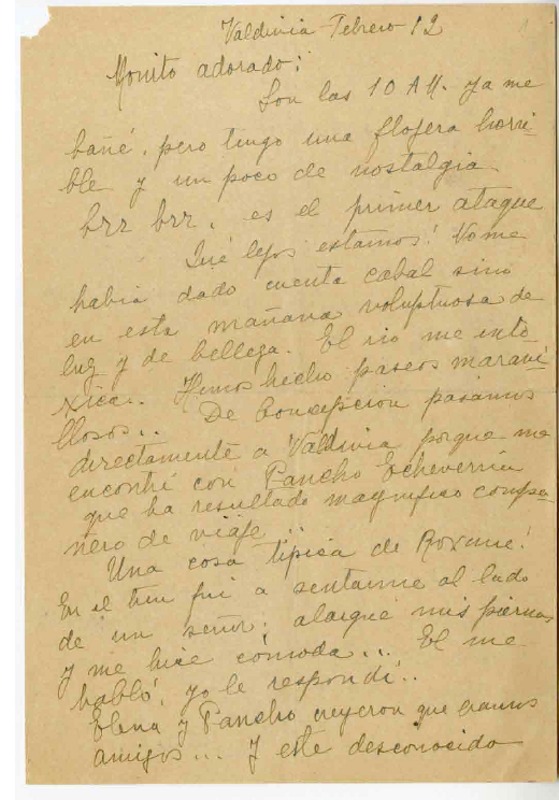 Valdivia Febrero 12
Monito adorado:
Son las 10 AM. ya me
bañé, pero tengo una flojera horri-
ble y un poco de nostalgia
brr brr, es el primer ataque
Qué lejos estamos! No me
había dado cuenta cabal sino
en esta mañana voluptuosa de
luz y de belleza. El rio me into-
xica.. Hemos hecho paseos maravi-
llosos.. De Concepcion pasamos
directamente a Valdivia porque me
encontré con Pancho Echeverria
que ha resultado magnifico compa-
ñero de viaje..
Una cosa típica de Roxane!
En el tren fui a sentarme al lado
de un señor; alargué mis piernas
y me hice cómoda... El me
habló, yo le respondí..
Elena y Pancho creyeron que eramos
amigos... Y este desconocido